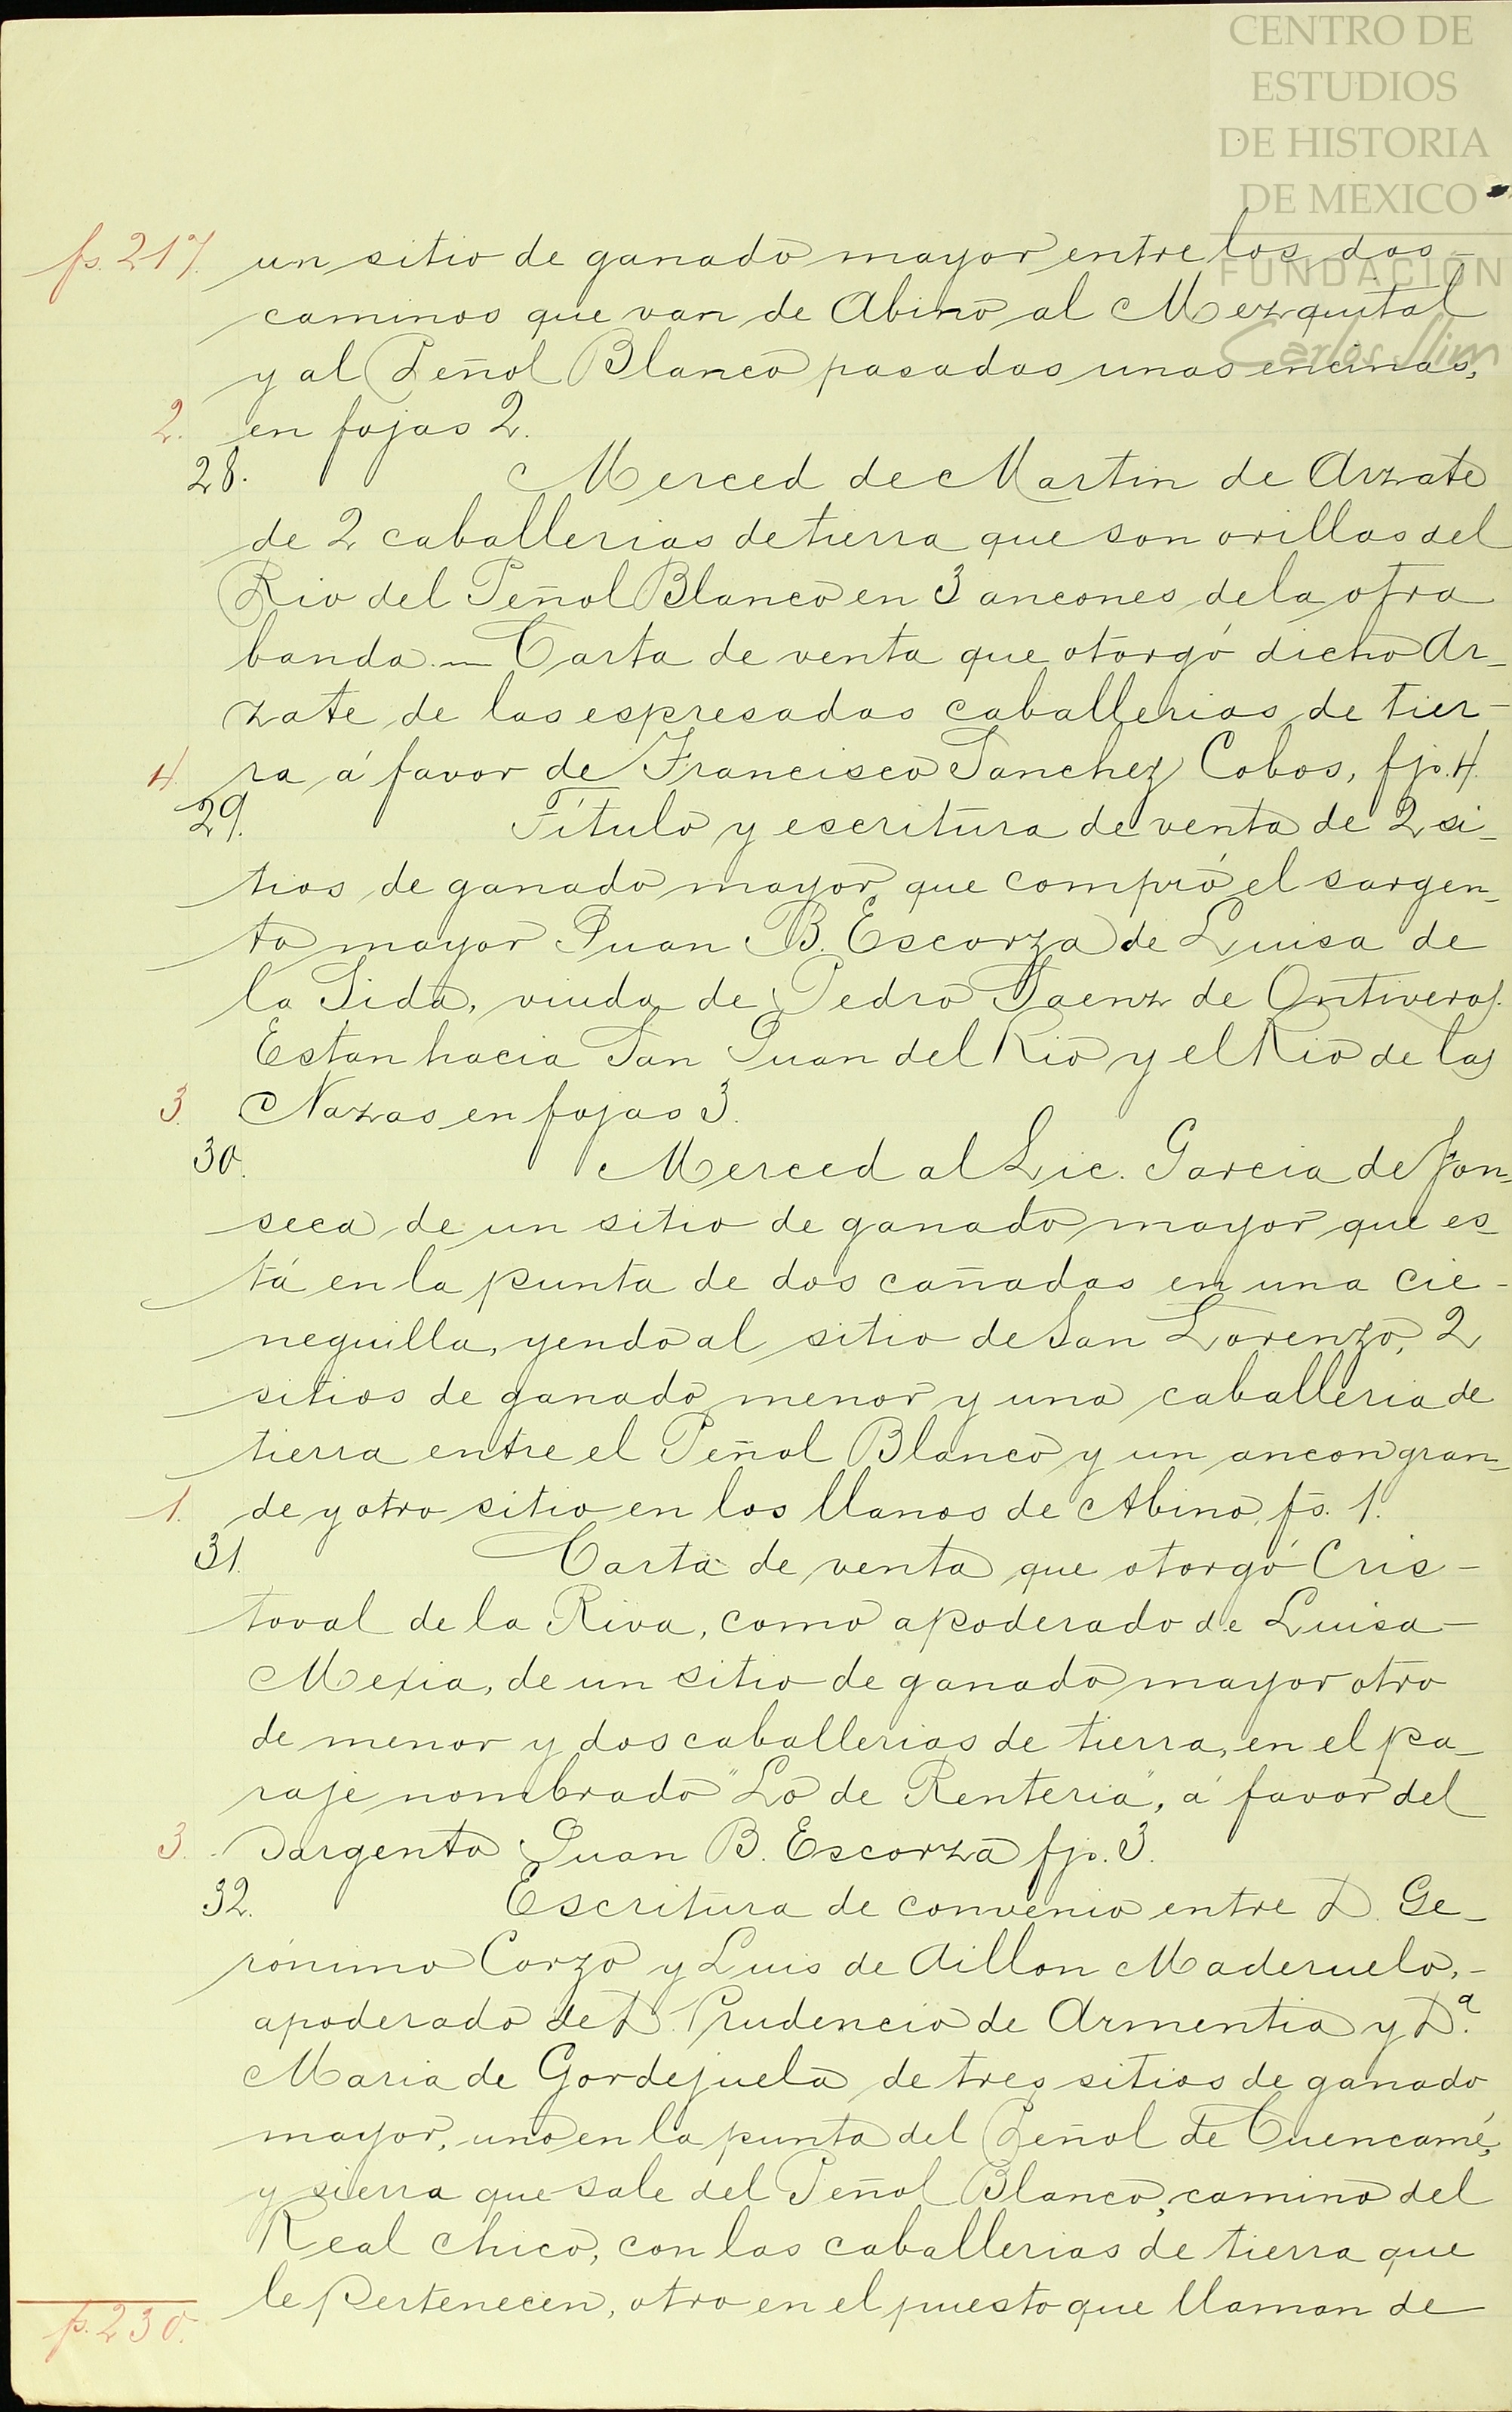 CENTRO DE
ESTUDIOS
DE HISTORIA
DE MEXICO
FUNDACIÓN
Carlos Slim
fs. 217. un sitio de ganado mayor entre los dos
caminos que van de Abino al Mezquital
y al Peñol Blanco pasadas unas encinas,
2. en fojas 2.
28. Merced de Martin de Arzate
de 2 caballerias de tierra que son orillas del
Rio del Peñol Blanco en 3 ancones de la otra
banda. — Carta de venta que otorgó dicho Ar-
zate de las espresadas caballerias de tier-
4. ra á favor de Francisco Sanchez Cobos, fjs. 4.
29. Título y escritura de venta de 2 si-
tios de ganado mayor que compró el sargen-
to mayor Juan B. Escorza de Luisa de
la Sida, viuda de Pedro Saenz de Ontiveros.
Estan hacia San Juan del Rio y el Rio de las
3. Nazas en fojas 3.
30. Merced al Lic. Garcia de Fon-
seca de un sitio de ganado mayor que es
tá en la punta de dos cañadas en una cie-
neguilla, yendo al sitio de San Lorenzo, 2
sitios de ganado menor y una caballeria de
tierra entre el Peñol Blanco y un ancon gran-
1. de y otro sitio en los llanos de Abino, fs. 1.
31. Carta de venta que otorgó Cris-
toval de la Riva, como apoderado de Luisa
Mexia, de un sitio de ganado mayor otro
de menor y dos caballerias de tierra, en el pa-
raje nombrado "Lo de Renteria", á favor del
3. Sargento Juan B. Escorza fjs. 3.
32. Escritura de convenio entre D. Ge-
rónimo Corzo y Luis de Aillon Maderuelo,-
apoderado de D. Prudencio de Armentia y D.ª
Maria de Gordejuela de tres sitios de ganado
mayor, uno en la punta del Peñol de Cuencamé,
y sierra que sale del Peñol Blanco, camino del
Real chico, con las caballerias de tierra que
le pertenecen, otro en el puesto que llaman de
fs. 230.